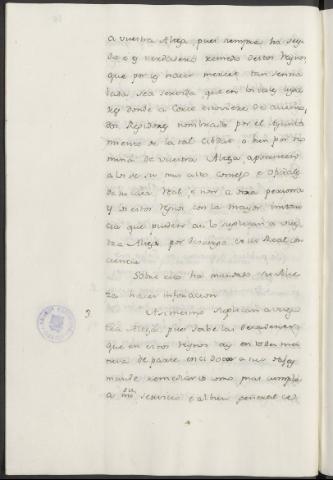 a vuestra Alteza, pues siempre ha seydo
e es verdadero remedio destos Reynos
que por les hacer merced tan señalada
sea servida que en los tales lugares
donde a Corte estoviere de asiento,
dos Regidores nombrados por el Ayuntamiento
de la tal cibdad o bien por nómina
de vuestra Alteza aposienten
a los de su muy alto Consejo e oficiales
de su casa Real, e non a otra persona
y destos Reynos con la mayor instancia
que pueden asi lo suplican a vuestra
Alteza por descargo de su Real conciencia
Sobre esto ha mandado su Alteza
hacer informacion
3 Asimesmo suplican a vuestra
Alteza pues sabe las
que en estos Reynos ay en todas maneras
de
mande remediarlo como mas cumpla
a su servicio e al bien general de